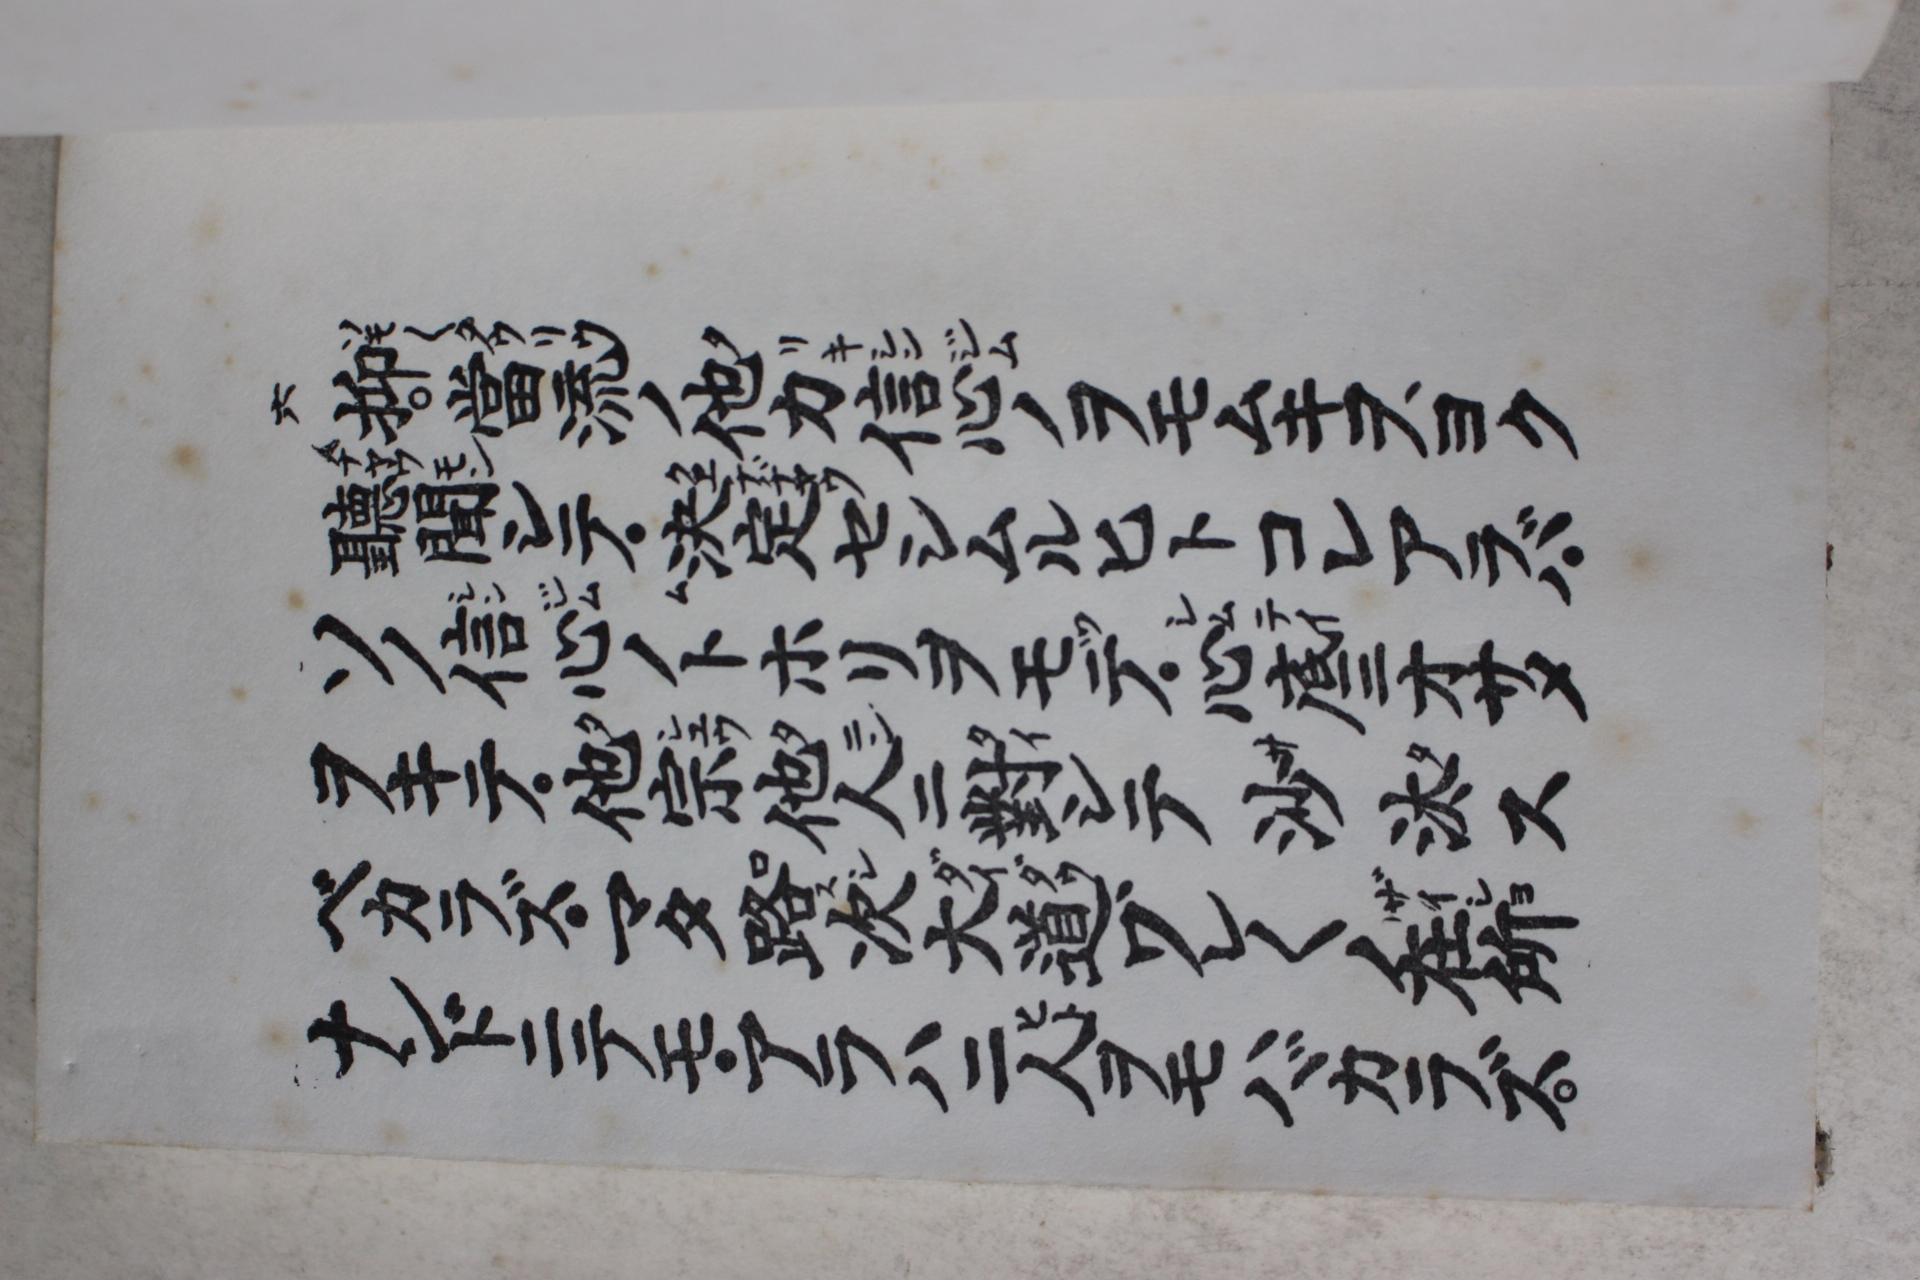 六
抑。當流ノ他力信心ノヲモムキヲ、ヨク
聽聞シテ・決定セシムルヒトコレアラバ・
ソノ信心ノトホリヲモデ・心底ニオサメ
ヲキテ・他宗他人ニ對シテ沙汰ス
ベカラズ・マタ路次大道ワレ〱ノ在所
ナンドニテモ・アラハニ人ヲモハバカラズ。